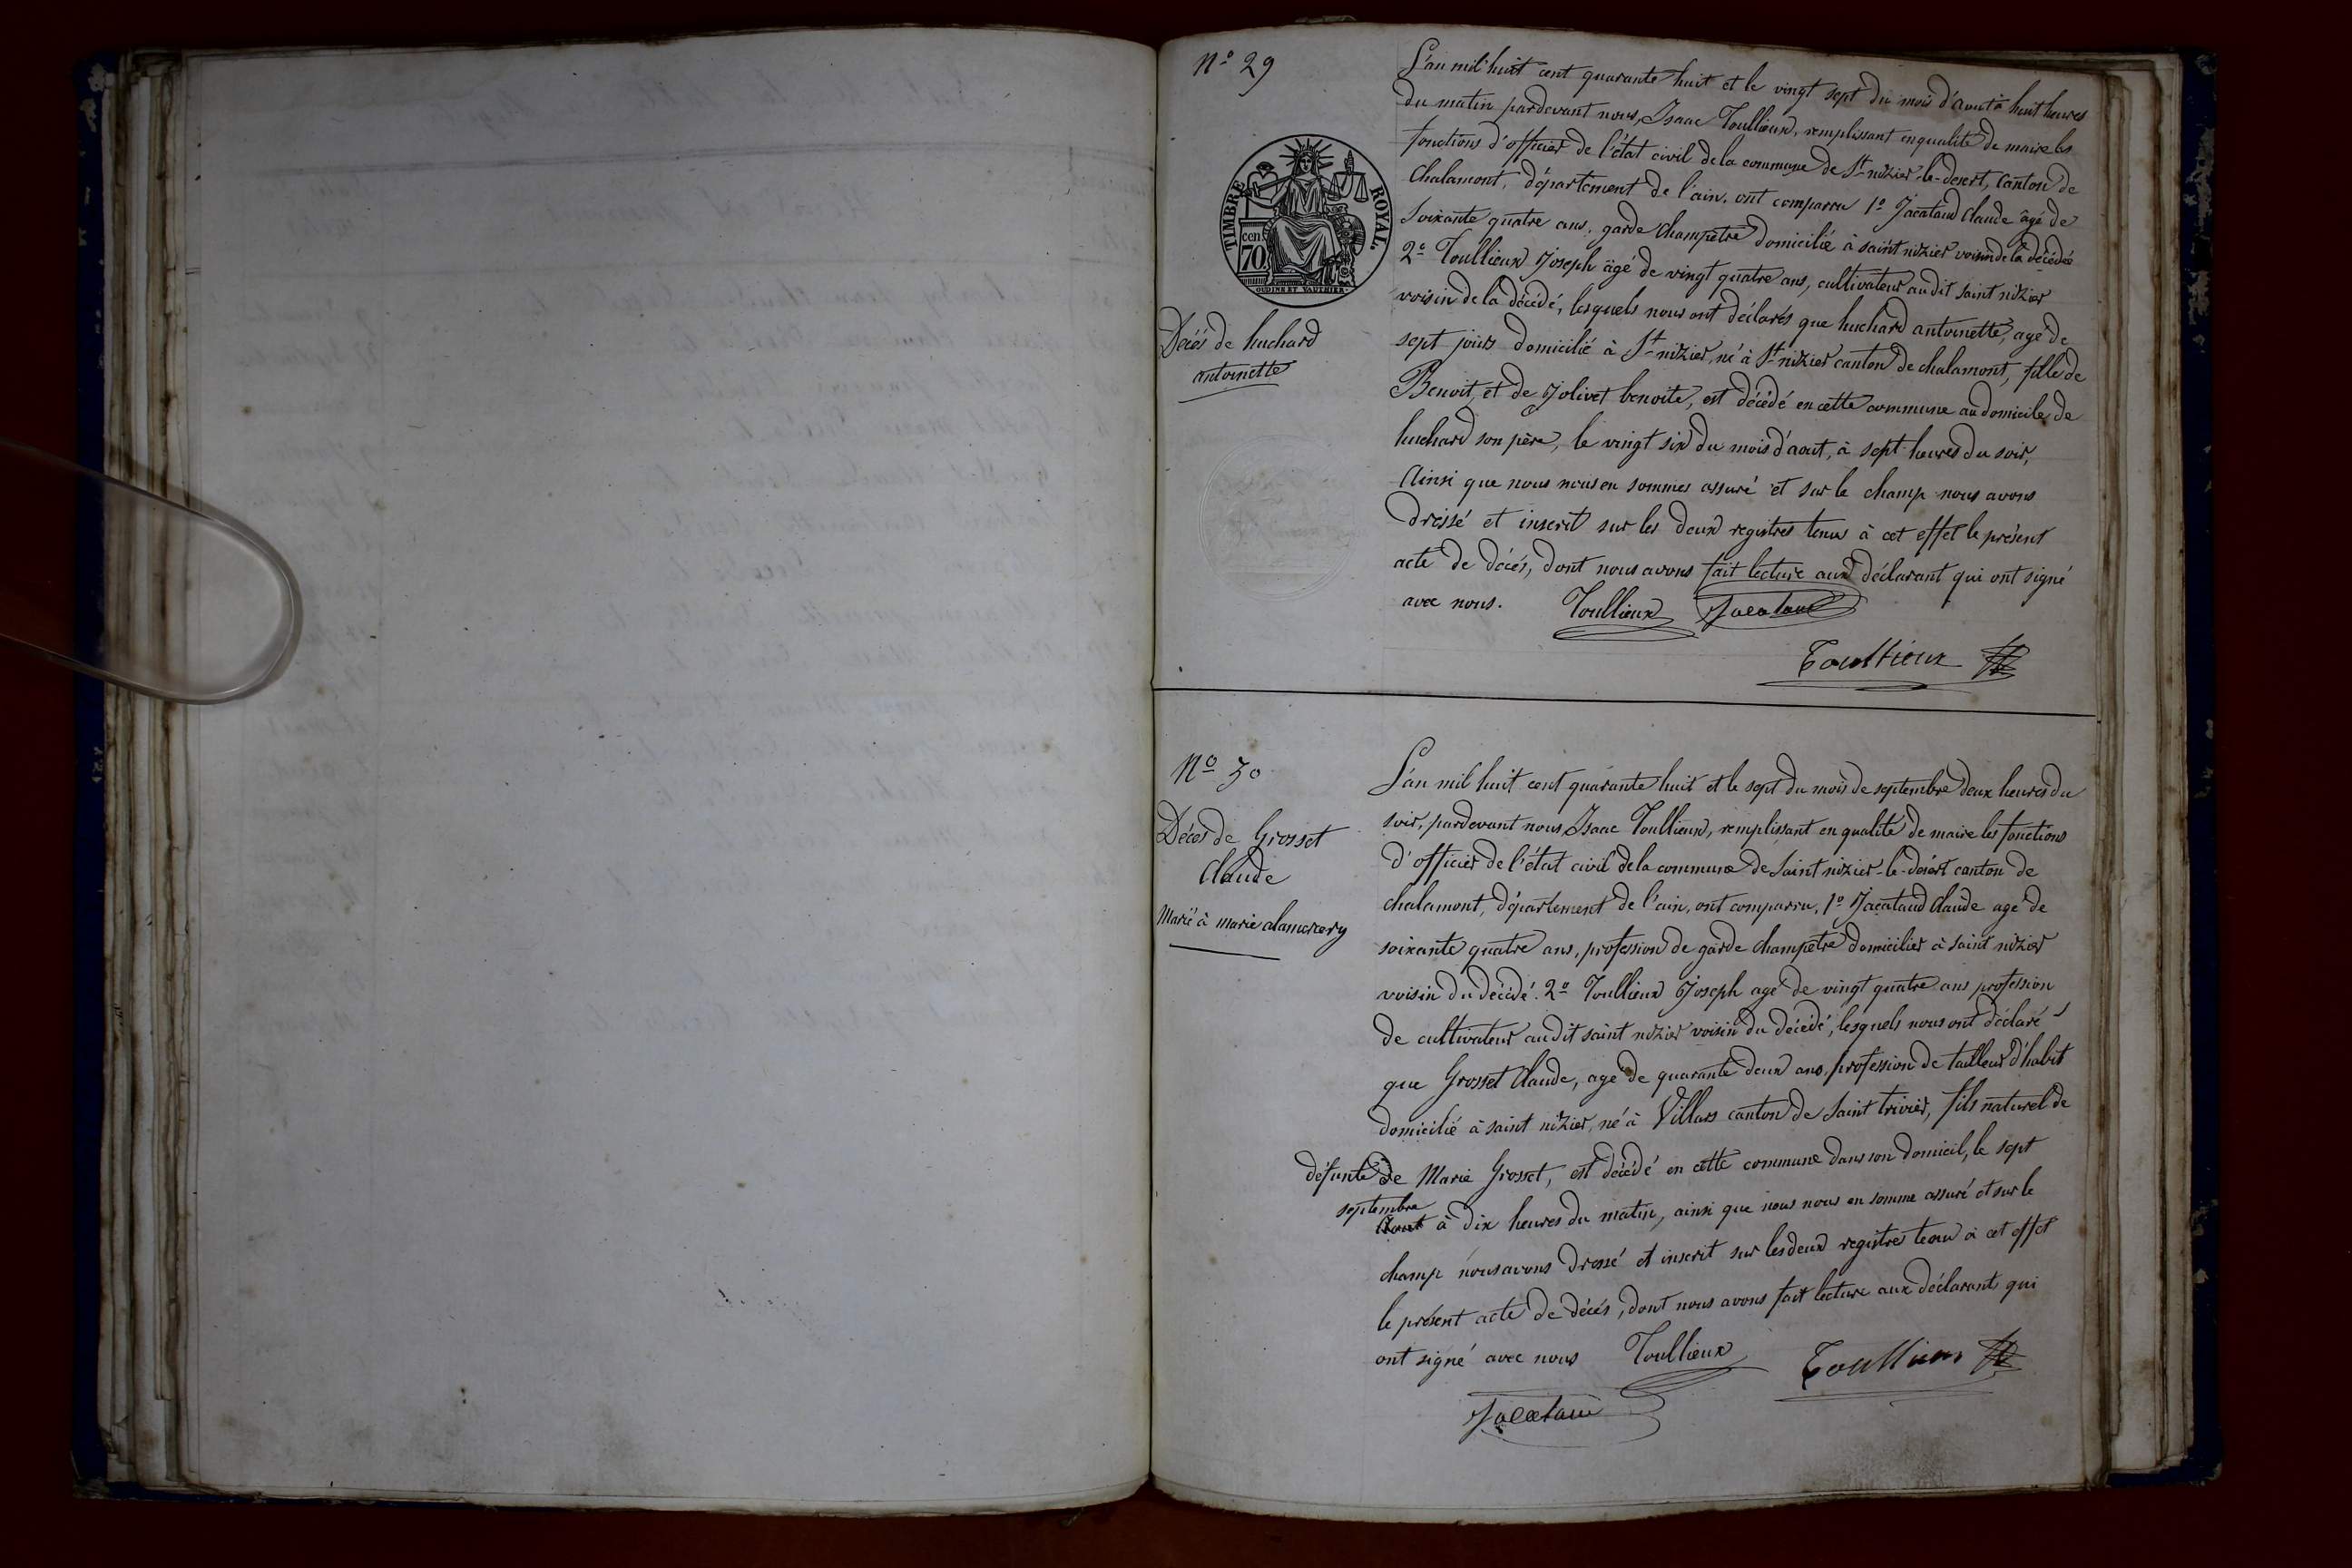 N° 29
TIMBRE ROYAL.
cen. 70
OUDINE ET VAUTHIER
Décés de huchard
antoinette
L'an mil huit cent quarante huit et le vingt sept du mois d'aout à huit heures
du matin pardevant nous, Isaac Toullieux, remplissant en qualité de maire les
fonctions d'officier de l'état civil de la commune de St-nizier-le-desert, Canton de
Chalamont, département de l'ain, ont comparru 1° Jacataud Claude âgé de
soixante quatre ans, garde champetre domicilié à saint nizier voisin de la décédée
2° Toullieux Joseph âgé de vingt quatre ans, cultivateur audit saint nizier
voisin de la décédé, lesquels nous ont déclarés que huchard antoinette, age de
sept jours domicilié à St-nizier, né à St-nizier canton de chalamont, fille de
Benoit, et de Jolivet benoite, est décédé en cette commune au domicile de
huchard son père, le vingt six du mois d'aout, à sept heures du soir,
Ainsi que nous nous en sommes assuré et sur le champ nous avons
dressé et inscrit sur les deux registres tenus à cet effet le présent
acte de décés, dont nous avons fait lecture aux déclarant qui ont signé
avec nous. Toullieux Jacataud
Toullieux
N° 30
Décès de Grosset
Claude
Marié à marie alamercery
L'an mil huit cent quarante huit et le sept du mois de septembre deux heures du
soir, pardevant nous, Isaac Toullieux, remplissant en qualité de maire les fonctions
d'officier de l'état civil de la commune de Saint nizier-le-désert canton de
chalamont, département de l'ain, ont comparru, 1° Jacataud Claude age de
soixante quatre ans, profession de garde champetre domicilier à saint nizier
voisin du décédé. 2° Toullieux Joseph age de vingt quatre ans profession
de cultivateur audit saint nizier voisin du décédé, lesquels nous ont déclaré
que Grosset Claude, age de quarante deux ans, profession de tailleur d'habit
domicilié à saint nizier, né à Villars canton de Saint trivier, fils naturel de
défunte de Marie Grosset, est décédé en cette commune dans son domicil, le sept
septembre
Aout à dix heures du matin, ainsi que nous nous en somme assuré et sur le
champ nous avons dressé et inscrit sur les deux registre tenu à cet effet
le présent acte de décés, dont nous avons fait lecture aux déclarant qui
ont signé avec nous Toullieux Toullieux
Jacataud